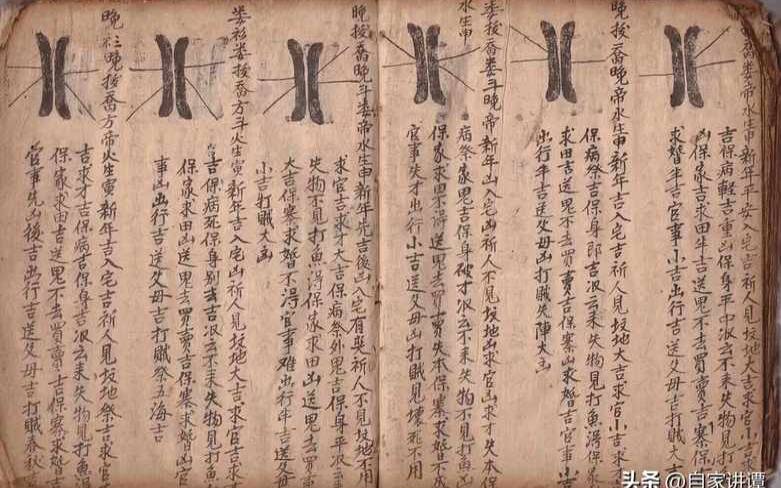 喬娄帝水生申新年平安入宅吉祈人見坟地大吉求官小吉
吉保病輕吉重凶保身平中汲云耒失物見打
凶保家吉求田牛吉送鬼不去買賣吉寨保
求婚半吉官事小吉出行吉送父母吉打賊大凶
晚捘喬晚帝水生申新年吉入宅吉祈人見坟地大吉求官小吉求
保病祭吉保身即吉汲云耒失物見打魚淂保家
求田吉送鬼不去買賣吉保寨凶求婚吉官事小吉
出行半吉送父母凶打賊失陣大凶
娄捘喬娄斗晚帝水生申新年凶入宅凶祈人不見坟地凶求官凶求才失本保
病祭家鬼吉保身破才汲云不耒失物不見打魚凶
保家求田不淂送鬼去買賣失本保寨求婚不成
官事失才出行小吉送父母凶打賊見壞死不用
晚捘喬晚斗娄帝水生申新年先吉後凶入宅有災祈人不見坟地不用
求官吉求才大吉保病祭外鬼吉保身平汲云
失物不見打魚淂保家求田凶送鬼去買賣
大吉保寨求婚不淂官事难出行半吉送父母
小吉打賊大凶
娄衫娄捘喬方斗火生寅新年吉入宅凶祈人見坟地大吉求官吉求
吉保病死保身别去吉汲云不耒失物見打
保家求田凶送鬼去買賣吉保寨求婚凶官
事凶出行吉送父母吉打賊祭五海吉
晚衫晚捘喬方帝火生寅新年吉入宅吉祈人見坟地祭吉求官
吉求才吉保病吉保身吉汲云耒失物見打魚淂
保家求田吉送鬼不去買賣吉保寨求婚吉
官事先凶後吉出行吉送父母吉打賊春秋
头条 @自家讲谭